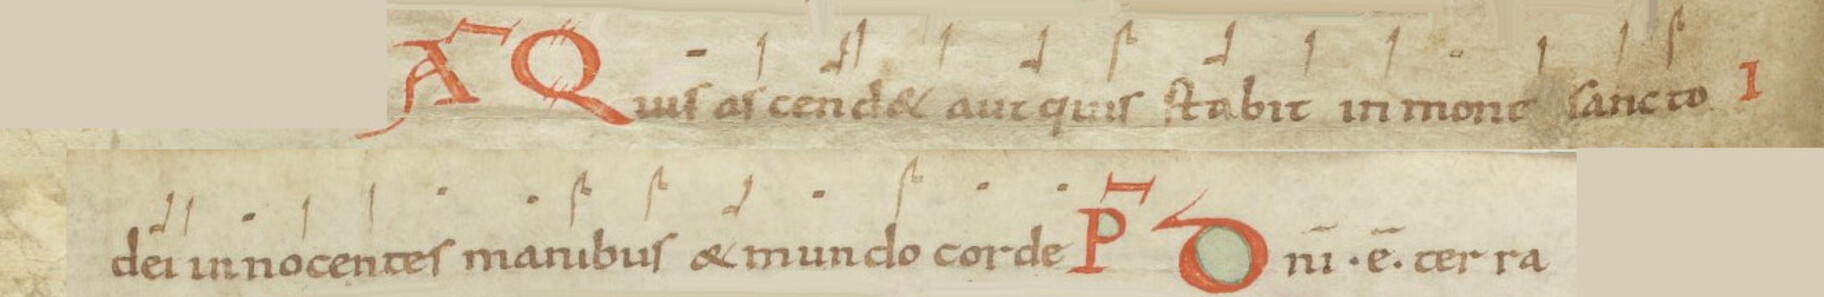 A Quis ascend& aut quis stabit in mont sancto I
dei innocentes manibus & mundo corde P Dnī · ē · terra